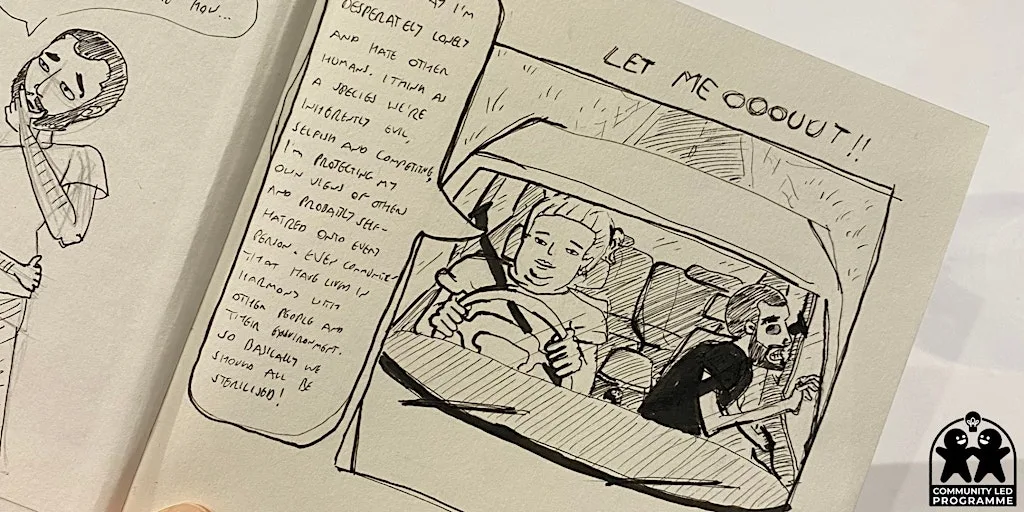 I'M
DESPERATELY LONELY
AND HATE OTHER
HUMANS. I THINK AS
A SPECIES WE'RE
INHERENTLY EVIL,
SELFISH AND COMPETING,
I'M PROTECTING MY
OWN VIEWS OF OTHERS
AND PROBABLY SELF-
HATRED ONTO EVERY
PERSON. EVEN COMMUNITIES
THAT HAVE LIVED IN
HARMONY WITH
OTHER PEOPLE AND
THEIR ENVIRONMENT.
SO BASICALLY WE
SHOULD ALL BE
STERILISED!
LET ME OOOOUUT!!
COMMUNITY LED
PROGRAMME